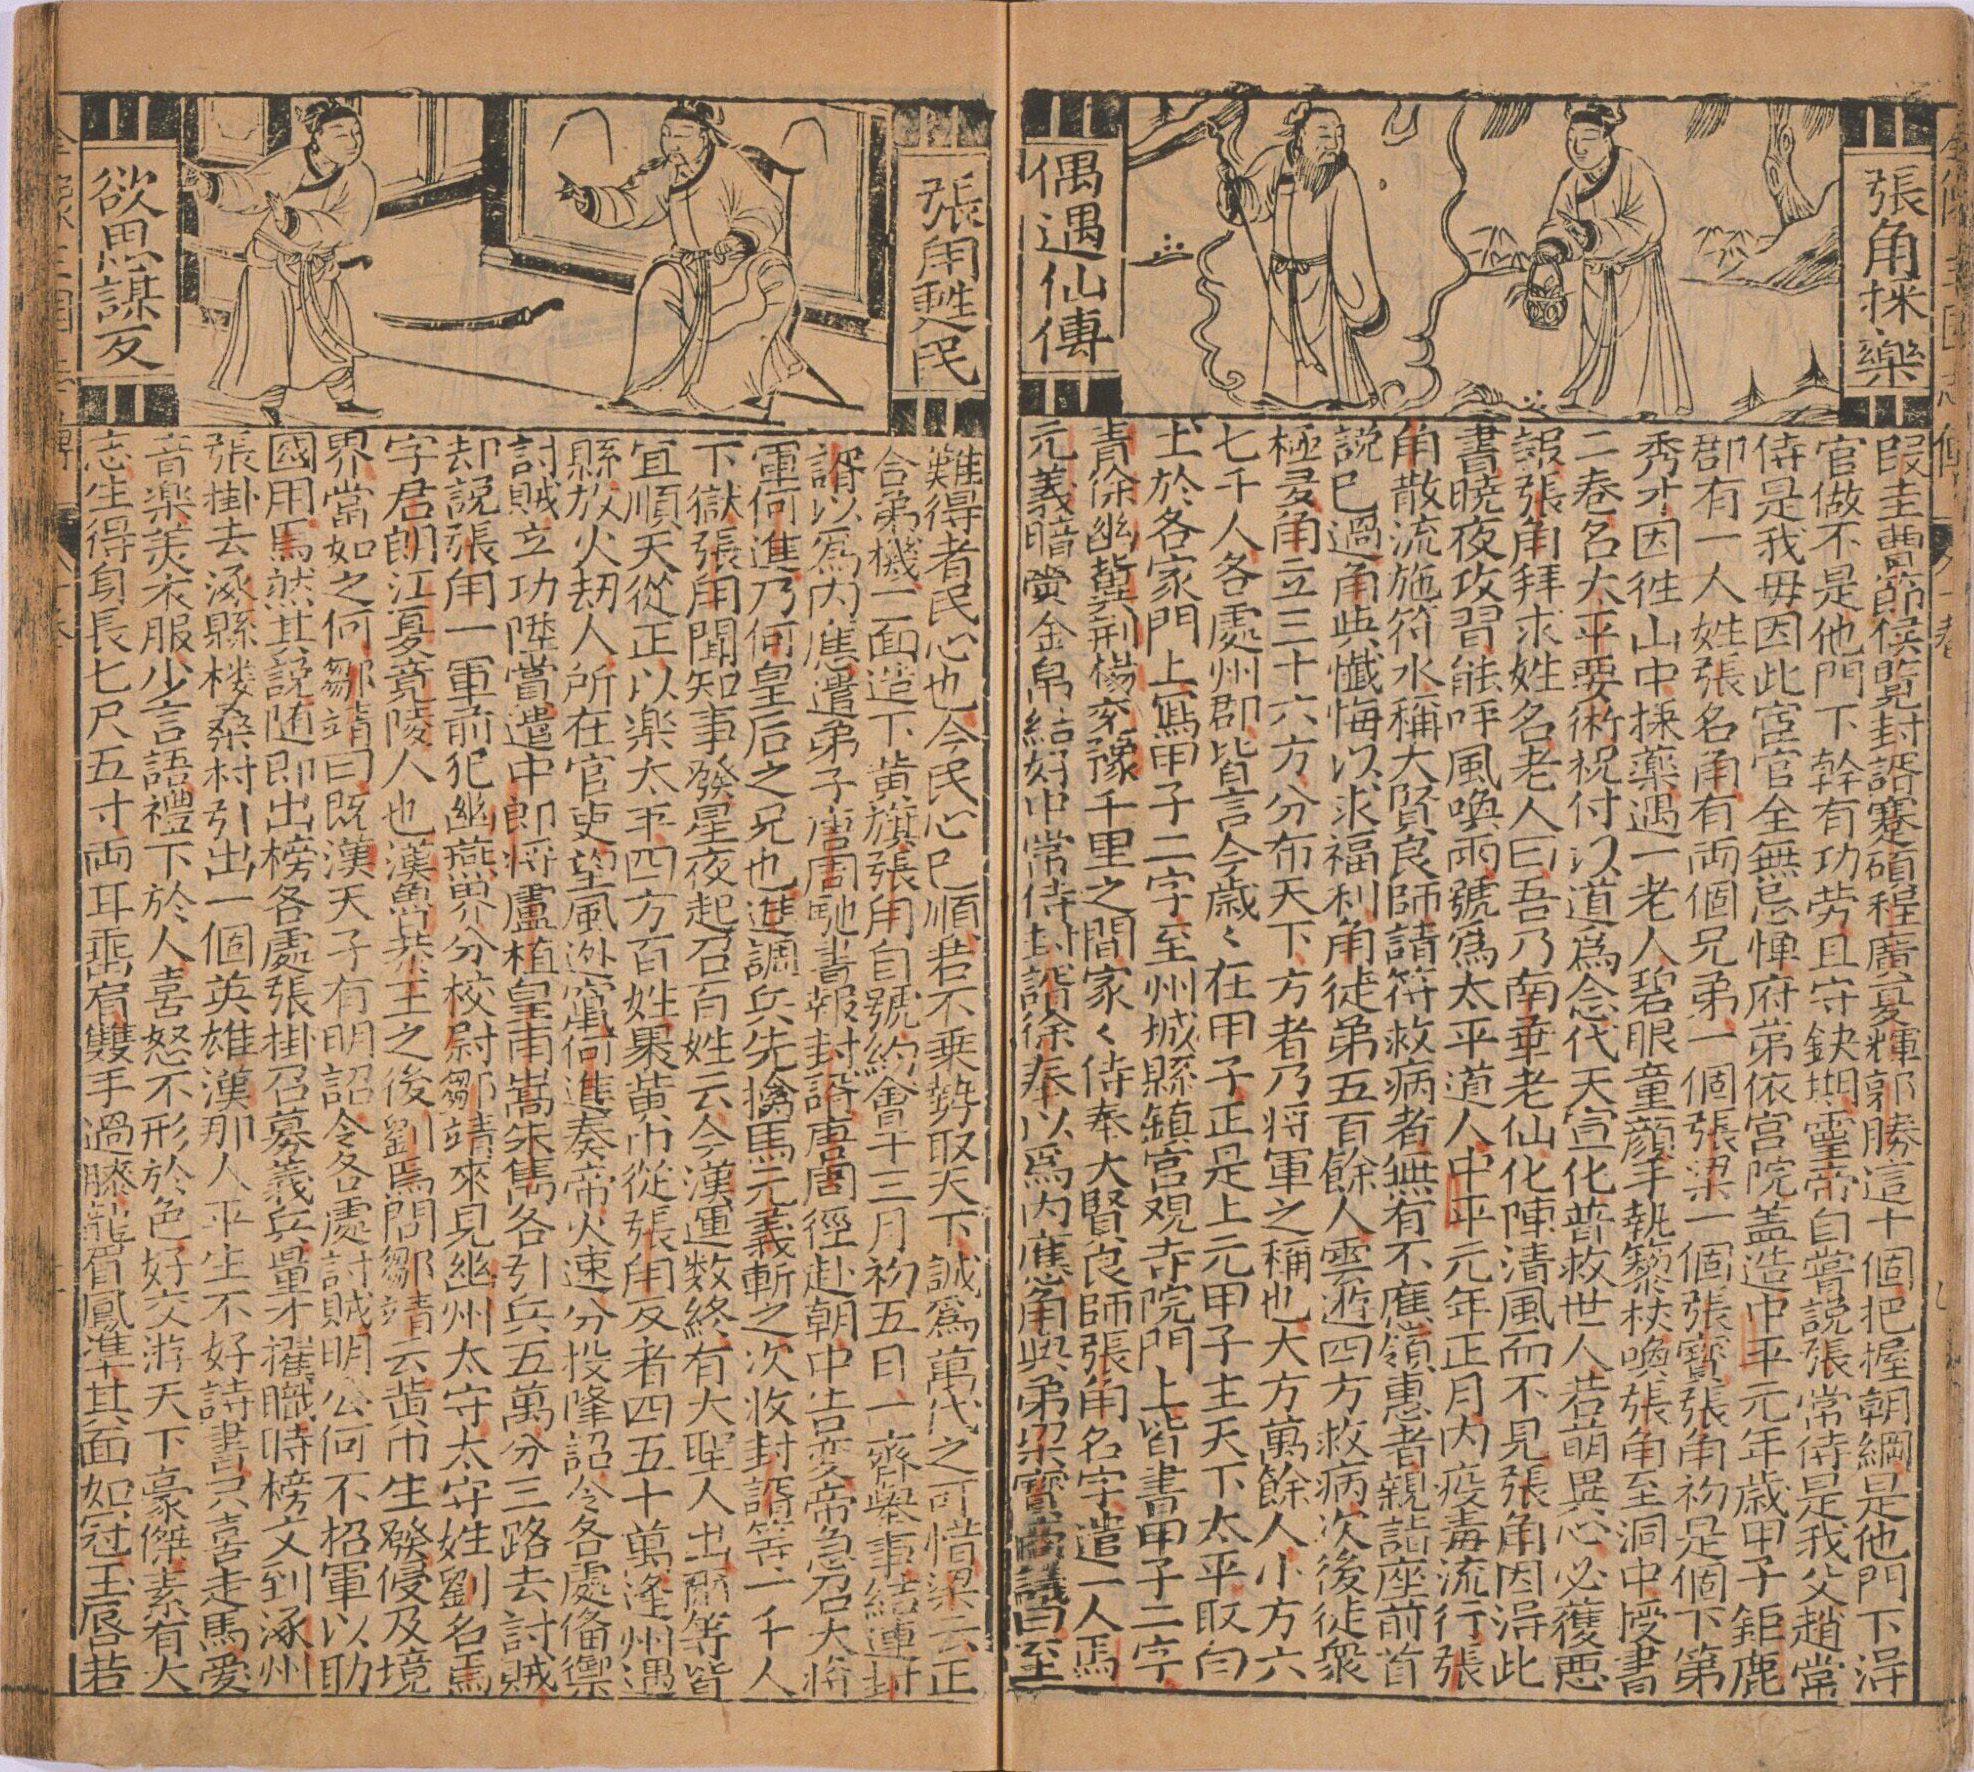 張角採藥
偶遇仙傳
段圭曹節侯覽封諝蹇碩程廣夏輝郭勝這十個把握朝綱是他門下淂
官做不是他門下幹有功勞且守缺期霊帝自嘗説張常侍是我父趙常
侍是我母因此宦官全無忌憚府第依宫院盖造中平元年歳甲子鉅鹿
郡有一人姓張名角有両個兄弟一個張梁一個張寶張角初是個下第
秀才因徃山中採藥遇一老人碧眼童顔手執藜杖喚張角至洞中授書
二巻名太平要術祝付以道爲念代天宣化普救世人若萌異心必獲惡
報張角拜求姓名老人曰吾乃南華老仙化陣清風而不見張角因淂此
書曉夜攻習能呼風喚雨號爲太平道人中平元年正月内疫毒流行張
角散流施符水稱大賢良師請符救病者無有不應領患者親詣座前首
説已過角與懺悔以求福利角徒弟五百餘人雲遊四方救病次後徒衆
極多角立三十六方分布天下方者乃将軍之稱也大方萬餘人小方六
七千人各處州郡皆言今歳〻在甲子正是上元甲子主天下太平取白
土於各家門上寫甲子二字至州城縣鎮宫观寺院門上皆書甲子二字
青徐幽冀荆楊兖豫千里之間家〻侍奉大賢良師張角名字遣一人馬
元義暗賞金帛結好中常侍封諝徐奉以爲内應角與弟梁寶商議曰至
張角甦民
欲思謀反
難得者民心也今民心已順若不乗勢取天下誠爲萬代之可惜梁云正
合弟機一面造下黄旗張角自號約會于三月初五日一齊舉事結連封
諝以爲内應遣弟子唐周馳書報封諝唐周徑赴朝中告変帝急召大将
軍何進乃何皇后之兄也進調兵先擒馬元義斬之次收封諝等一千人
下獄張角聞知事發星夜起召百姓云今漢運数終有大聖人出爾等皆
宜順天從正以楽太平四方百姓裹黄巾從張角反者四五十萬逢州遇
縣放火刼人所在官吏望風迯竄何進奏帝火速分投降詔令各處偹禦
討賊立功陞賞遣中郎将盧植皇甫嵩朱雋各引兵五萬分三路去討賊
却説張角一軍前犯幽燕界分校尉鄒靖來見幽州太守太守姓劉名焉
字君朗江夏竟陵人也漢魯恭王之後劉焉問鄒靖云黄巾生發侵及境
界當如之何鄒靖曰既漢天子有明詔令各處討賊明公何不招軍以助
國用焉然其説随即出榜各處張掛召募義兵量才擢職時榜文到涿州
張掛去涿縣楼桑村引出一個英雄漢那人平生不好詩書只喜走馬愛
音楽美衣服少言語禮下於人喜怒不形於色好交游天下豪傑素有大
志生得身長七尺五寸両耳垂肩雙手過膝龍眉鳳準其面如冠玉唇若